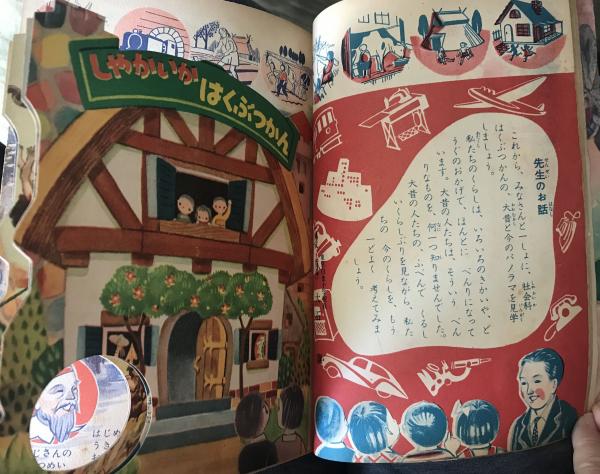 しやかいか
はくぶつかん
じさんの
つめい
はじめ
うき
先生のお話
せんせい
はなし
これから、みなさんと一しょに、社会科
はくぶつかんの、大昔と今のパノラマを見学
しましょう。
私たちのくらしは、いろいろのきかいや、ど
うぐのおかげで、ほんとに べんりになって
います。大昔の人たちは、そういう べん
りなものを、何一つ知りませんでした。
大昔の人たちの、ふべんで くるし
いくらしぶりを見ながら、私た
ちの 今のくらしを、もう
一どよく 考えてみま
しょう。